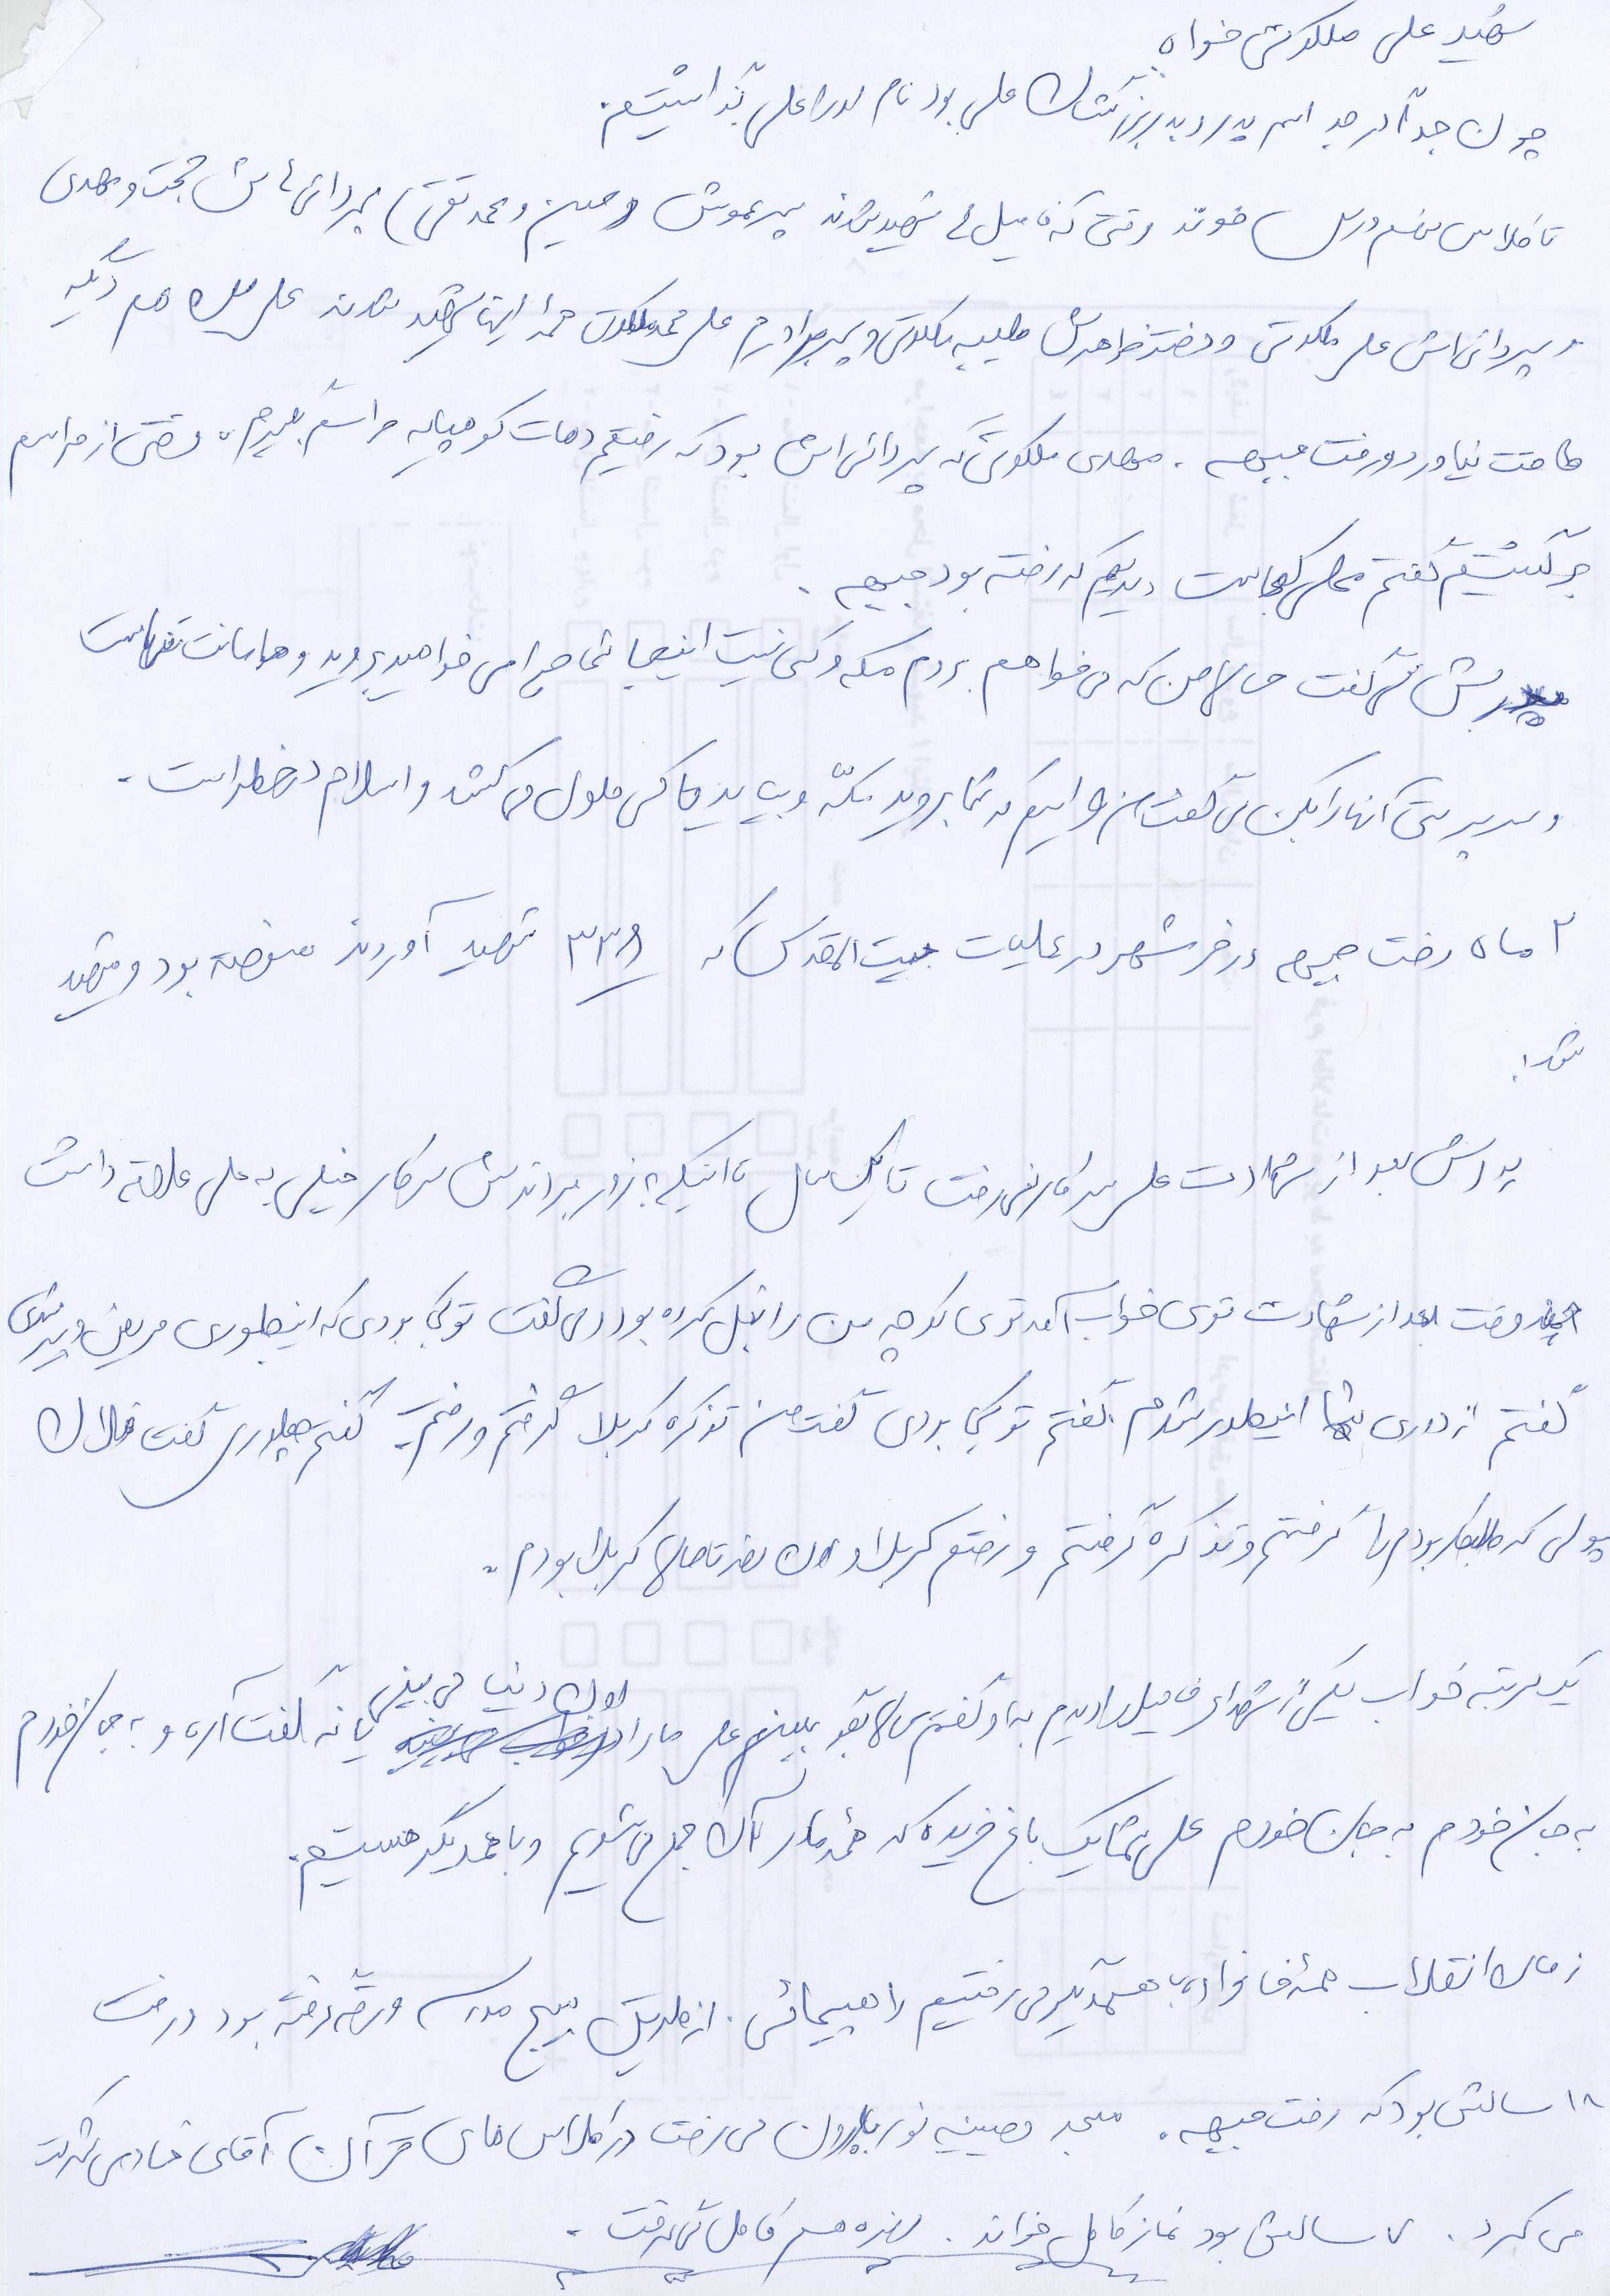 شهید علی ملکوتی خواه
چون جد اندر جد اسم پدر و پدربزرگشان علی بود نام او را علی گذاشتیم.
تا کلاس نهم درس خوند وقتی که فامیل شهید شدند پسرعموش (حسین و محمد تقی) پسردائی هاش حجت و مهدی
و پسردائی اش علی ملکوتی و دختر خواهرش طیبه ملکوتی و پسر برادرم علی محمد ملکوتی همه اینها شهید شدند علی هم دیگه
طاقت نیاورد و رفت جبهه. مهدی ملکوتی که پسردائی اش بود که رفتیم دهات کوهپایه مراسم بگیریم، وقتی از مراسم
برگشتیم گفتم علی کجاست دیدیم که رفته بود جبهه.
پدرش می گفت حالا من که می خواهم بروم مکه و کسی نیست اینجا شما چرا می خواهید بروید و مامانت تنهاست
و سرپرستی آنها را بکن می گفت من که شما بروید مکه و بیایید طول می کشد و اسلام در خطر است.
۲ ماه رفت جبهه در خرمشهر در عملیات بیت المقدس که ۳۳۸ شهید آوردند بود و شهید
شد.
پدرش بعد از شهادت علی سر کار نمی رفت تا یک سال تا اینکه به زور بردندش سر کار خیلی به علی علاقه داشت
چند وقت بعد از شهادت توی خواب آمد توی کوچه من را بغل کرده بود و می گفت تو کی بودی که اینطوری مریض و پیر شدی
گفتم از دوری شما اینطور شدم گفتم تو کجا بودی گفت من تذکره کربلا گرفتم و رفتم گفتم چطوری گفت فلان
پولی که طلبکار بودم را گرفتم و تذکره گرفتم و رفتم کربلا و اون روز تا حالا کربلا بودم.
یک مرتبه خواب یکی از شهدای فامیل را دیدم به او گفتم حالا بگو ببینم علی ما را اون دنیا می بینی یا نه گفت آره و به جان خودم
به جان خودم به جان خودم علی شما یک باغ خریده که همه ما در آن جمع می شویم و با همدیگر هستیم.
زمان انقلاب همه خانواده با همدیگر می رفتیم راهپیمائی. از طریق بسیج مدرسه رفته بود و رفت
۱۸ سالش بود که رفت جبهه. مسجد حسینیه نورباران می رفت در کلاس های قرآن آقای شرکت
می کرد. ۷ سالش بود نماز کامل خواند. روزه هم کامل می گرفت.